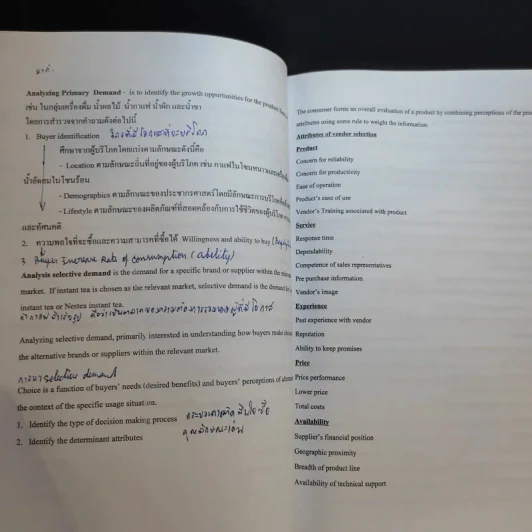 Analyzing Primary Demand - is to identify the growth opportunities for the product
เช่น ในกลุ่มเครื่องดื่ม น้ำผลไม้ น้ำกาแฟ น้ำผัก และน้ำชา
โดยการสำรวจจากคำถามดังต่อไปนี้
1. Buyer identification
ศึกษาจากผู้บริโภคโดยแบ่งตามลักษณะดังนี้คือ
- Location ตามลักษณะถิ่นที่อยู่ของผู้บริโภค เช่น กาแฟในโซนหนาว
น้ำอัดลมในโซนร้อน
- Demographics ตามลักษณะของประชากรศาสตร์โดยมีลักษณะการบริโภค
- Lifestyle ตามลักษณะของผลิตภัณฑ์ที่สอดคล้องกับการใช้ชีวิตของผู้บริโภค
และทัศนคติ
2. ความพอใจที่จะซื้อและความสามารถที่ซื้อได้ Willingness and ability to buy
3. Buyer Increase Rate of consumption (ability)
Analysis selective demand is the demand for a specific brand or supplier within the
market. If instant tea is chosen as the relevant market, selective demand is the demand
instant tea or Nestea instant tea.
Analyzing selective demand, primarily interested in understanding how buyers make
the alternative brands or suppliers within the relevant market.
selective demand
Choice is a function of buyers' needs (desired benefits) and buyers' perceptions of
the context of the specific usage situation.
1. Identify the type of decision making process
2. Identify the determinant attributes
The consumer forms an overall evaluation of a product by combining perceptions of the
attributes using some rule to weight the information.
Attributes of vendor selection
Product
Concern for reliability
Concern for productivity
Ease of operation
Product's ease of use
Vendor's Training associated with product
Service
Response time
Dependability
Competence of sales representatives
Pre purchase information
Vendor's image
Experience
Past experience with vendor
Reputation
Ability to keep promises
Price
Price performance
Lower price
Total costs
Availability
Supplier's financial position
Geographic proximity
Breadth of product line
Availability of technical support